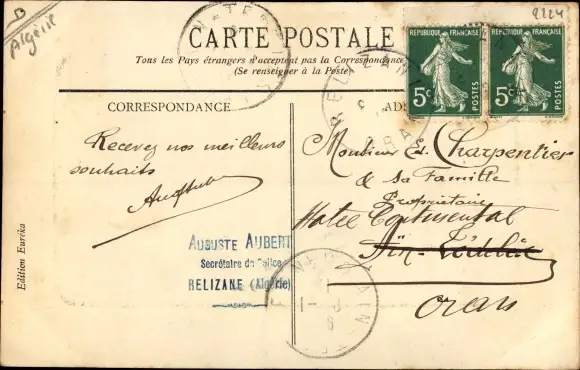 Algérie
9224
CARTE POSTALE
Tous les Pays étrangers n'acceptent pas la Correspondance
(Se renseigner à la Poste)
RÉPUBLIQUE FRANÇAISE
5c
POSTES
RÉPUBLIQUE FRANÇAISE
5c
POSTES
RELIZANE
CORRESPONDANCE
Recevez nos meilleurs
souhaits
AUGUSTE AUBERT
Secrétaire de Police
RELIZANE (Algérie)
Edition Eureka
Monsieur Ed. Charpentier
& sa Famille
Propriétaire
Hotel Continental
Aïn-Tédélès
Oran